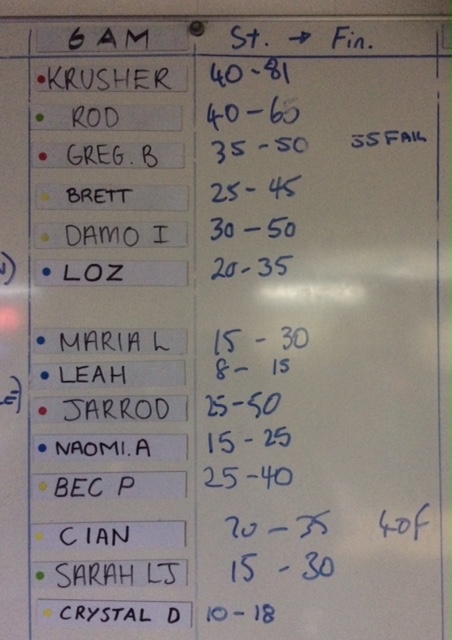 6AM St. → Fin.
KRUSHER 40-81
ROD 40-65
GREG. B 35-50 55 FAIL
BRETT 25-45
DAMO I 30-50
LOZ 20-35
MARIA L 15-30
LEAH 8-15
JARROD 25-50
NAOMI.A 15-25
BEC P 25-40
CIAN 20-35 40F
SARAH LJ 15-30
CRYSTAL D 10-18